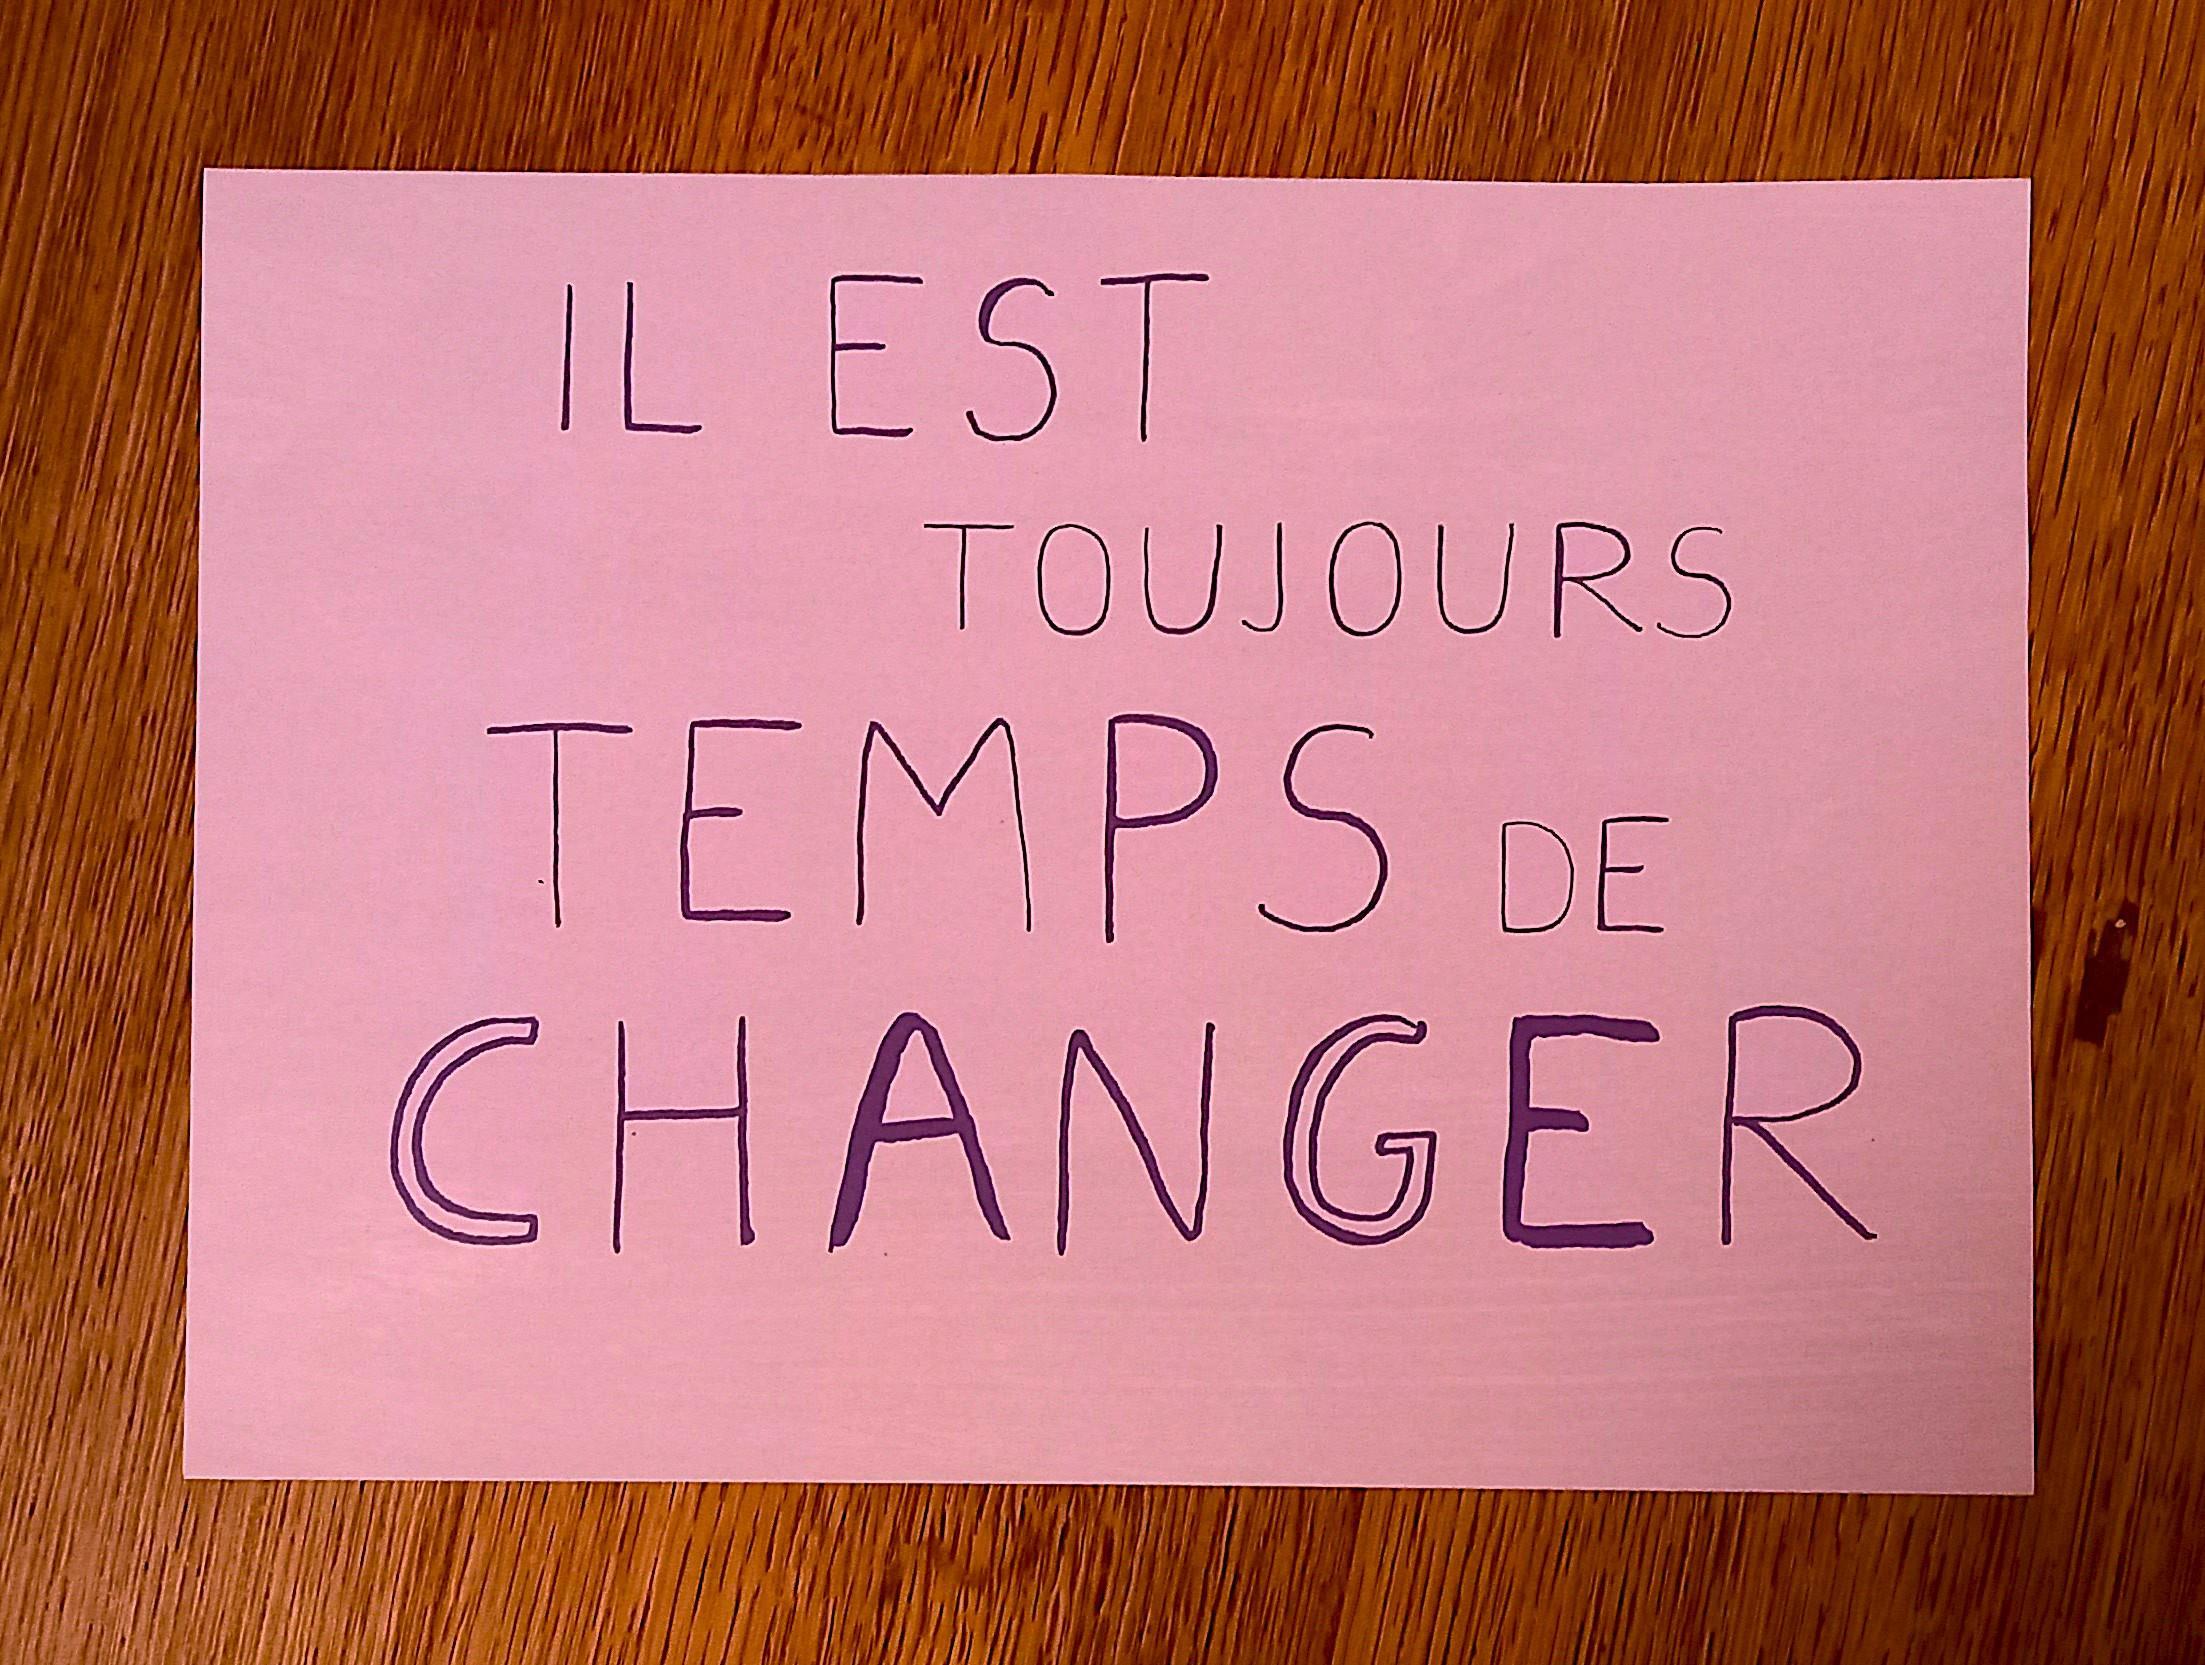 IL EST
TOUJOURS
TEMPS DE
CHANGER